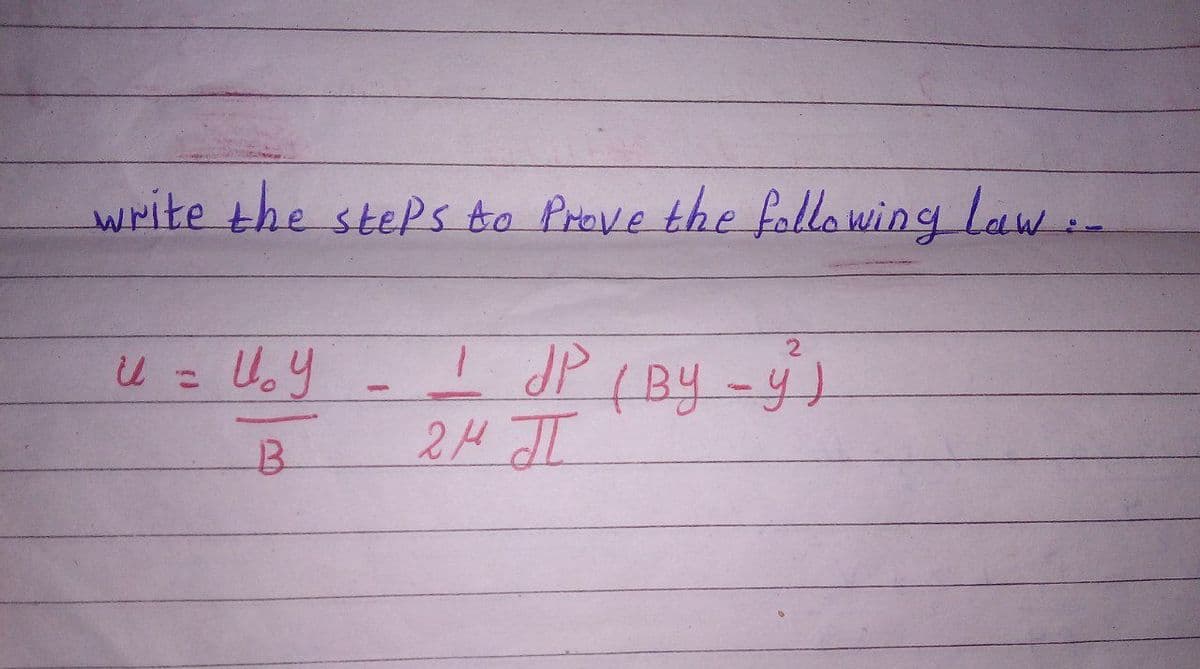 write the steps to Prove the following law :-
u = U₀y/B - 1/2μ dP/dl (By - y²)